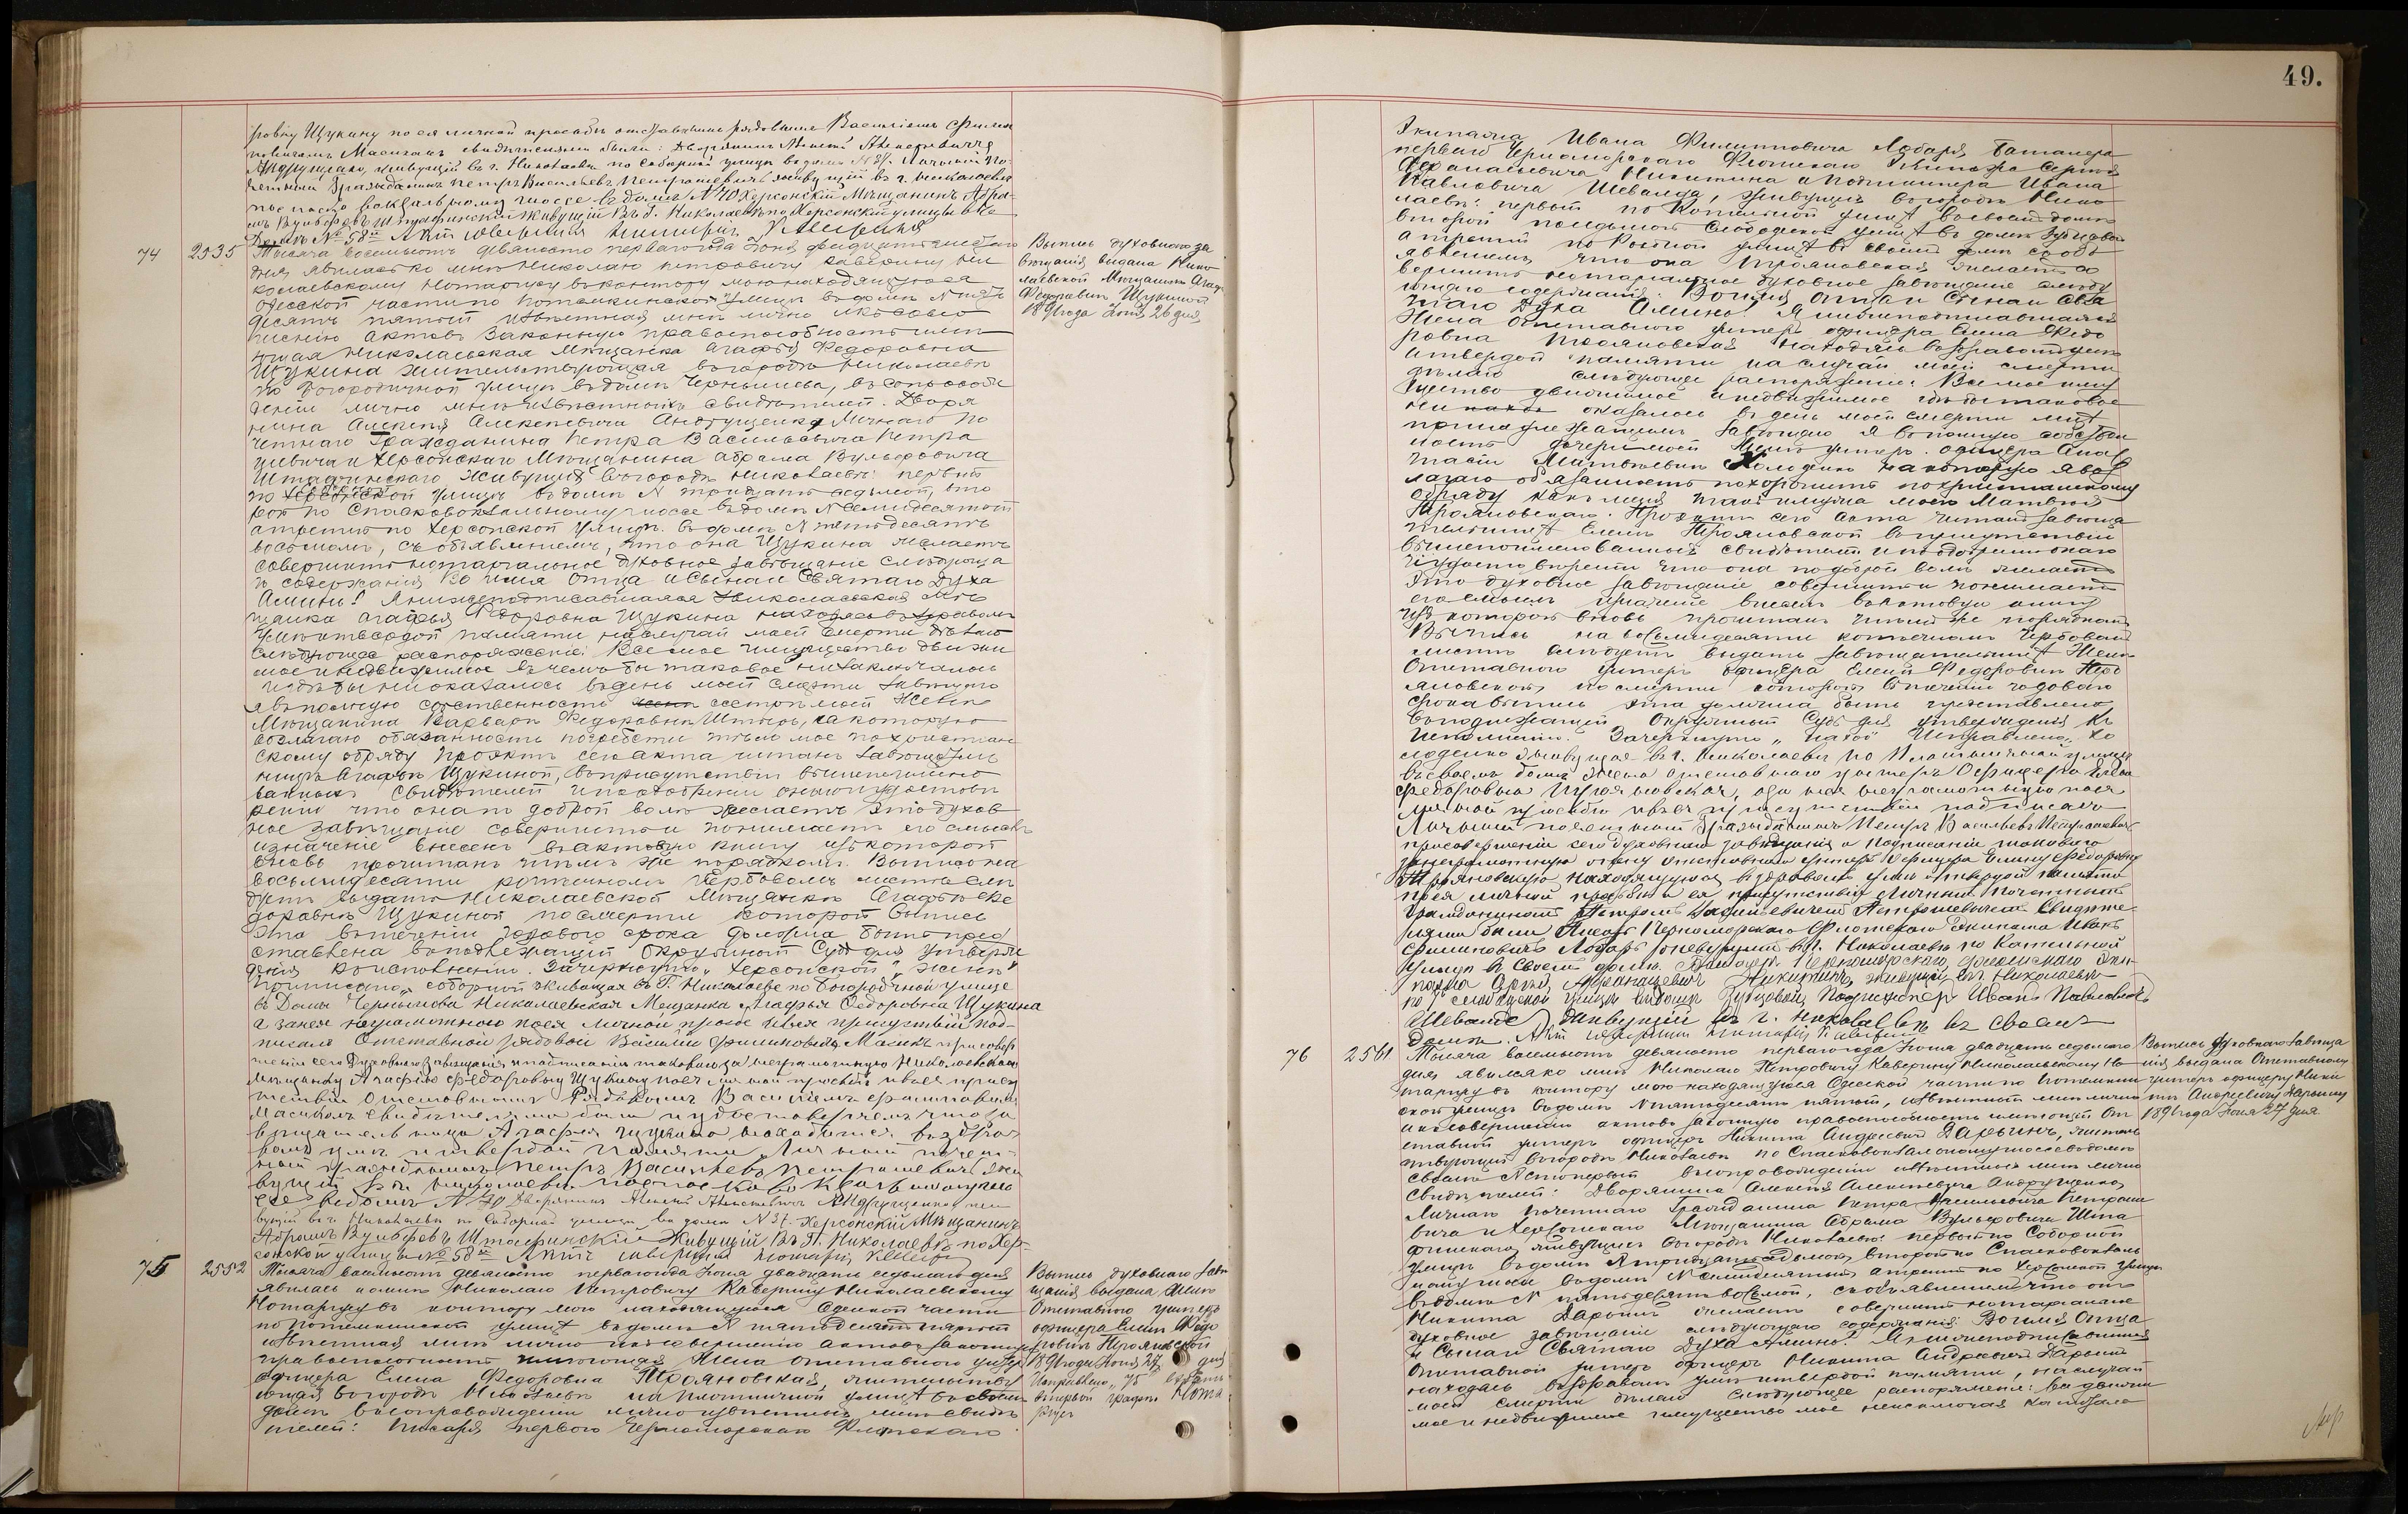 49.
ровну Щукину по ея личной просьбѣ отставнымъ рядовымъ Василіемъ Филип
повичемъ Масикомъ свидѣтелями были: Дворянинъ Алексѣй Алексѣевичъ
Андрущенко, живущій въ г. Николаевѣ по Соборной улицѣ въ домѣ N 37. Личный По-
четный Гражданинъ Петръ Васильевъ Петрашевичъ живущій въ г. Николаевѣ
вокзальному шоссе въ домѣ N 70 Херсонскій Мѣщанинъ Абра-
мъ Вульфовъ Штрафинскій Живущій Въ Г. Николаевѣ по Херсонской улицѣ въ
Домѣ № 58й
74 2535 Тысяча восемьсотъ девяносто перваго года Іюня двадцать шестаго
дня явилась ко мнѣ Николаю Петровичу Каверину Ни
колаевскому Нотаріусу въ контору мою находящуюся
Одесской части по Потемкинской улицѣ въ домѣ N пять
десятъ пятый извѣстная мнѣ лично и къ совер
шенію актовъ Законную правоспособность имѣ
ющая Николаевская Мѣщанка Агафья Федоровна
Щукина жительствующая въ городѣ Николаевѣ
по Богородичной улицѣ въ домѣ Чернышева, въ сопровож
деніи лично мнѣ извѣстныхъ свидѣтелей: Дворя
нина Алексѣя Алексѣевича Андрущенка, Личнаго По
четнаго Гражданина Петра Васильевича Петра
шевича и Херсонскаго Мѣщанина Абрама Вульфовича
Штрафинскаго Живущихъ въ городѣ Николаевѣ: первый
по Херсонской улицѣ въ домѣ N тридцать седьмой, вто
рой по Спасковокзальному шоссе въ домѣ N семидесятый
а третій по Херсонской улицѣ въ домѣ N пятьдесятъ
восьмомъ, съ объявленіемъ, что она Щукина желаетъ
совершить нотаріальное духовное завѣщаніе слѣдующа
го содержанія Во имя Отца и Сына и Святаго Духа
Аминь! Я нижеподписавшаяся Николаевская Мѣ
щанка Агафья Федоровна Щукина находясь въ здравомъ
умѣ и твердой памяти на случай моей смерти дѣлаю
слѣдующее распоряженіе: Все мое имущество движи
мое и недвижимое въ чемъ бы таковое ни заключалось
и гдѣ бы ни оказалось въ день моей смерти завѣщаю
я въ полную собственность сестрѣ моей Женѣ
Мѣщанина Варварѣ Федоровнѣ на которую
возлагаю обязанность погребсти тѣло мое по христіан
скому обряду Проэктъ сего акта читанъ завѣщатель
ницѣ Агафьѣ Щукиной, въ присутствіи вышепоимено
ванныхъ свидѣтелей и по одобреніи онаго и удостовѣ
реніи что она по доброй волѣ желаетъ это духов
ное завѣщаніе совершить и понимаетъ его смыслъ
и значеніе внесенъ въ актовую книгу изъ которой
вновь прочитанъ тѣмъ же порядкомъ. Выпись на
восьмидесяти копѣечномъ гербовомъ листѣ слѣ
дуетъ выдать Николаевской Мѣщанкѣ Агафьѣ Фе
доровнѣ Щукиной по смерти которой выпись
эта въ теченіи годоваго срока должна быть пред
ставлена въ подлежащій Окружный Судъ для утвержде
денія къ исполненію. Зачеркнуто „Херсонской“ „женѣ“
„соборной Живущая въ Г. Николаевѣ по Богородичной улице
въ Домѣ Чернышова Николаевская Мещанка Агафья Федоровна Щукина
а за нея неграмотною по ея личной просьбѣ и въ ея присутствіи под-
писалъ Отставной рядовой Василій Филиповичъ Масикъ при совер
шеніи сего Духовнаго завѣщанія и подписаніи таковаго за неграмотную Николаевскую
Мѣщанку Агафію Федоровну Щукину по ея личной просьбѣ и въ ея присут
ствіи Отставнымъ Рядовымъ Василіемъ Филиповичемъ
Масикомъ свидѣтелями были и удостовѣряемъ что за
вѣщательница Агафія Щукина находится въ здра
вомъ умѣ и твердой памяти, Личный почет-
ный гражданинъ Петръ Васильевъ Петрашевичъ жи
вущій въ г. Николаевѣ по
въ домѣ N 70 Дворянинъ Алексѣй Алексѣевичъ Андрущенко, жи
вущій въ г. Николаевѣ по Соборной улицѣ въ домѣ N 37. Херсонскій Мѣщанинъ
Абрамъ Вульфовъ Штрафинскій Живущій Въ Г. Николаевѣ по Хер-
сонской улицы № 58й
Выпись духовнаго за
вѣщанія выдана Нико
лаевской Мѣщанкѣ Агаф.
Федоровнѣ Щукиной
1891 года Іюня 26 дня
75 2552 Тысяча восемьсотъ девяносто перваго года Іюня двадцать седьмаго дня
явилась ко мнѣ Николаю Петровичу Каверину Николаевскому
Нотаріусу въ контору мою находящуюся Одесской части
по Потемкинской улицѣ въ домѣ N пятьдесятъ пятый
извѣстная мнѣ лично и къ совершенію актовъ законную
правоспособность имѣющая Жена отставного унтеръ
офицера Елена Федоровна Трояновская, жительству
ющая въ городѣ Николаевѣ на Плотничной улицѣ въ своемъ
домѣ въ сопровожденіи лично извѣстныхъ мнѣ свидѣ
телей: Писаря перваго Черноморскаго Флотскаго
Выпись духовнаго завѣ
щанія выдана Женѣ
Отставного унтеръ
офицера Еленѣ Федо
ровнѣ Трояновской
1891 года Іюня 27 дня
Исправлено „75“
въ первой графѣ. Нота
ріусъ
Экипажа Ивана Филипповича Лобаря, Баталера
перваго Черноморскаго Флотскаго Экипажа Сергѣя
Афанасьевича Никитина и Подшкипера Ивана
Павловича Шевалда, живущихъ въ городѣ Нико
лаевѣ: первый по Котельной улицѣ въ своемъ домѣ
второй по Слободской улицѣ въ домѣ Зубцовой
а третій по улицѣ въ своемъ домѣ съ объ
явленіемъ что она Трояновская желаетъ со
вершить нотаріальное духовное завѣщаніе слѣду
ющаго содержанія: Во имя Отца и Сына и Свя
таго Духа Аминь! Я нижеподписавшаяся
Жена Отставного унтеръ офицера Елена Федо
ровна Трояновская находясь въ здравомъ умѣ
и твердой памяти на случай моей смерти
дѣлаю слѣдующее распоряженіе: Все мое иму
щество движимое и недвижимое гдѣ бы таковое
ни оказалось въ день моей смерти мнѣ
принадлежащимъ завѣщаю я въ полную собствен
ность дочери моей Женѣ унтеръ офицера Анас
тасіи Матвѣевнѣ Холоденко на которую я воз
лагаю обязанность похоронить по христіанскому
обряду какъ меня такъ и мужа моего Матвѣя
Трояновскаго. Проэктъ сего акта читанъ завѣща
тельницѣ Еленѣ Трояновской въ присутствіи
вышепоименованныхъ свидѣтелей и по одобреніи онаго
и удостовѣреніи что она по доброй волѣ желаетъ
это духовное завѣщаніе совершить и понимаетъ
его смыслъ и значеніе внесенъ въ актовую книгу
изъ которой вновь прочитанъ тѣмъ же порядкомъ
Выпись на восьмидесяти копѣечномъ гербовомъ
листѣ слѣдуетъ выдать завѣщательницѣ Женѣ
Отставного унтеръ офицера Еленѣ Федоровнѣ Тро
яновской, по смерти которой въ теченіи годоваго
срока выпись эта должна быть представлена
въ подлежащій Окружный Судъ для утвержденія къ
исполненію. Зачеркнуто Исправлено „Хо
лоденко живущая въ г. Николаевѣ по Плотничной улицѣ
въ своемъ домѣ жена отставнаго унтеръ Офицера Елена
Федоровна Трояновская, а за нея неграмотную по ея
личной просьбѣ и въ ея присутствіи подписалъ
Личный почетный Гражданинъ Петръ Васильевъ Петрашевичъ
при совершеніи сего духовнаго завѣщанія и подписаніи таковаго
за неграмотную жену отставнаго унтеръ офицера Елену Федоровну
Трояновскую находящуюся въ здравомъ умѣ и твердой памяти
по ея личной просьбѣ и въ ея присутствіи Личнымъ Почетнымъ
Гражданиномъ Петромъ Васильевичемъ Петрашевичемъ Свидѣте-
лями были Писарь Черноморскаго Флотскаго Экипажа Иванъ
Филиповичъ Лобарь въ г. Николаевѣ по Котельной
улицѣ въ Своемъ домѣ. Баталеръ Черноморскаго Флотскаго Эки-
пажа Сергѣй Афанасьевичъ Никитинъ, живущій въ г. Николаевѣ
по Слободской улицѣ въ домѣ Зубцовой, Подшкиперъ Иванъ Павловичъ
Шевалдъ, живущій въ г. Николаевѣ въ своемъ
домѣ.
76 2561 Тысяча восемьсотъ девяносто перваго года Іюня двадцать седьмого
дня явился ко мнѣ Николаю Петровичу Каверину Николаевскому Но-
таріусу въ контору мою находящуюся Одесской части по Потемкин
ской улицѣ въ домѣ N пятьдесятъ пятый, извѣстный мнѣ лично
и къ совершенію актовъ законную правоспособность имѣющій От
ставной унтеръ офицеръ Никита Андреевичъ Дарьинъ, житель
ствующій въ городѣ Николаевѣ по Спасковокзальному шоссе въ домѣ
своемъ N сто первый въ сопровожденіи извѣстныхъ мнѣ лично
свидѣтелей: Дворянина Алексѣя Алексѣевича Андрущенко,
Личнаго почетнаго Гражданина Петра Васильевича Петраше
вича и Херсонскаго Мѣщанина Абрама Вульфовича Штра
финскаго, живущихъ въ городѣ Николаевѣ: первый по Соборной
улицѣ въ домѣ N тридцать седьмой, второй по Спасковокзаль
ному шоссе въ домѣ N семидесятый, а третій по Херсонской улицѣ
въ домѣ N пятьдесятъ восьмой, съ объявленіемъ что онъ
Никита Дарьинъ желаетъ совершить нотаріальное
духовное завѣщаніе слѣдующаго содержанія: Во имя Отца
и Сына и Святаго Духа Аминь! Я нижеподписавшійся
Отставной унтеръ офицеръ Никита Андреевичъ Дарьинъ
находясь въ здравомъ умѣ и твердой памяти, на случай
моей смерти дѣлаю слѣдующее распоряженіе: Все движи
мое и недвижимое имущество мое
Выпись духовнаго завѣща
нія выдана Отставному
унтеръ офицеру Ники
тѣ Андреевичу Дарьину
1891 года Іюня 27 дня